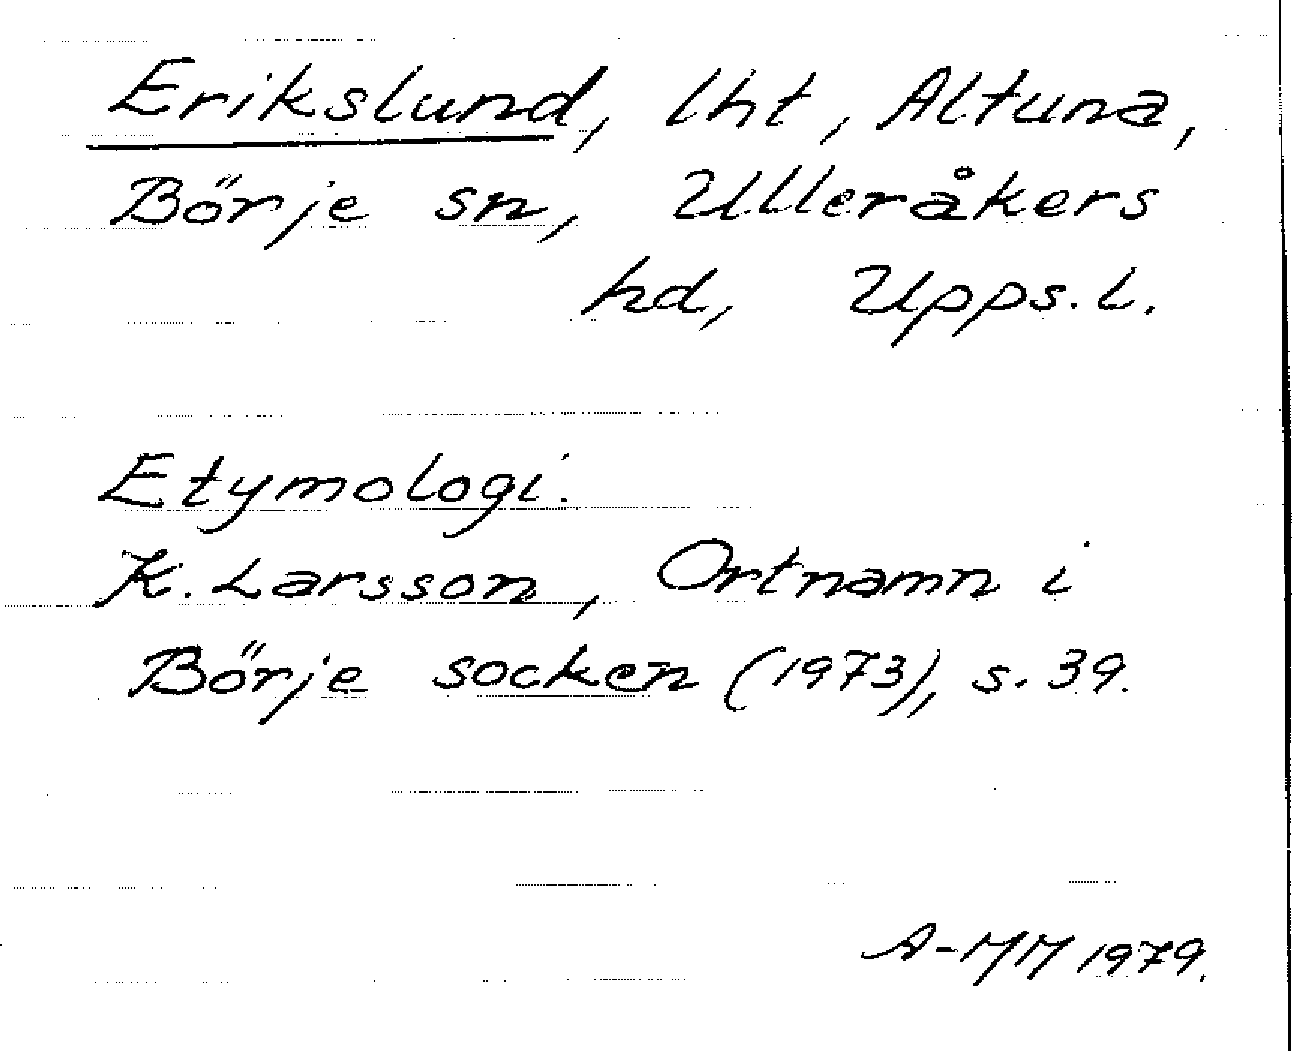 Erikslund, lht, Altuna,
Börje sn, Ulleråkers
hd, Upps. l.
Etymologi.
K. Larsson, Ortnamn i
Börje socken (1973), s. 39.
A-MM 1979.